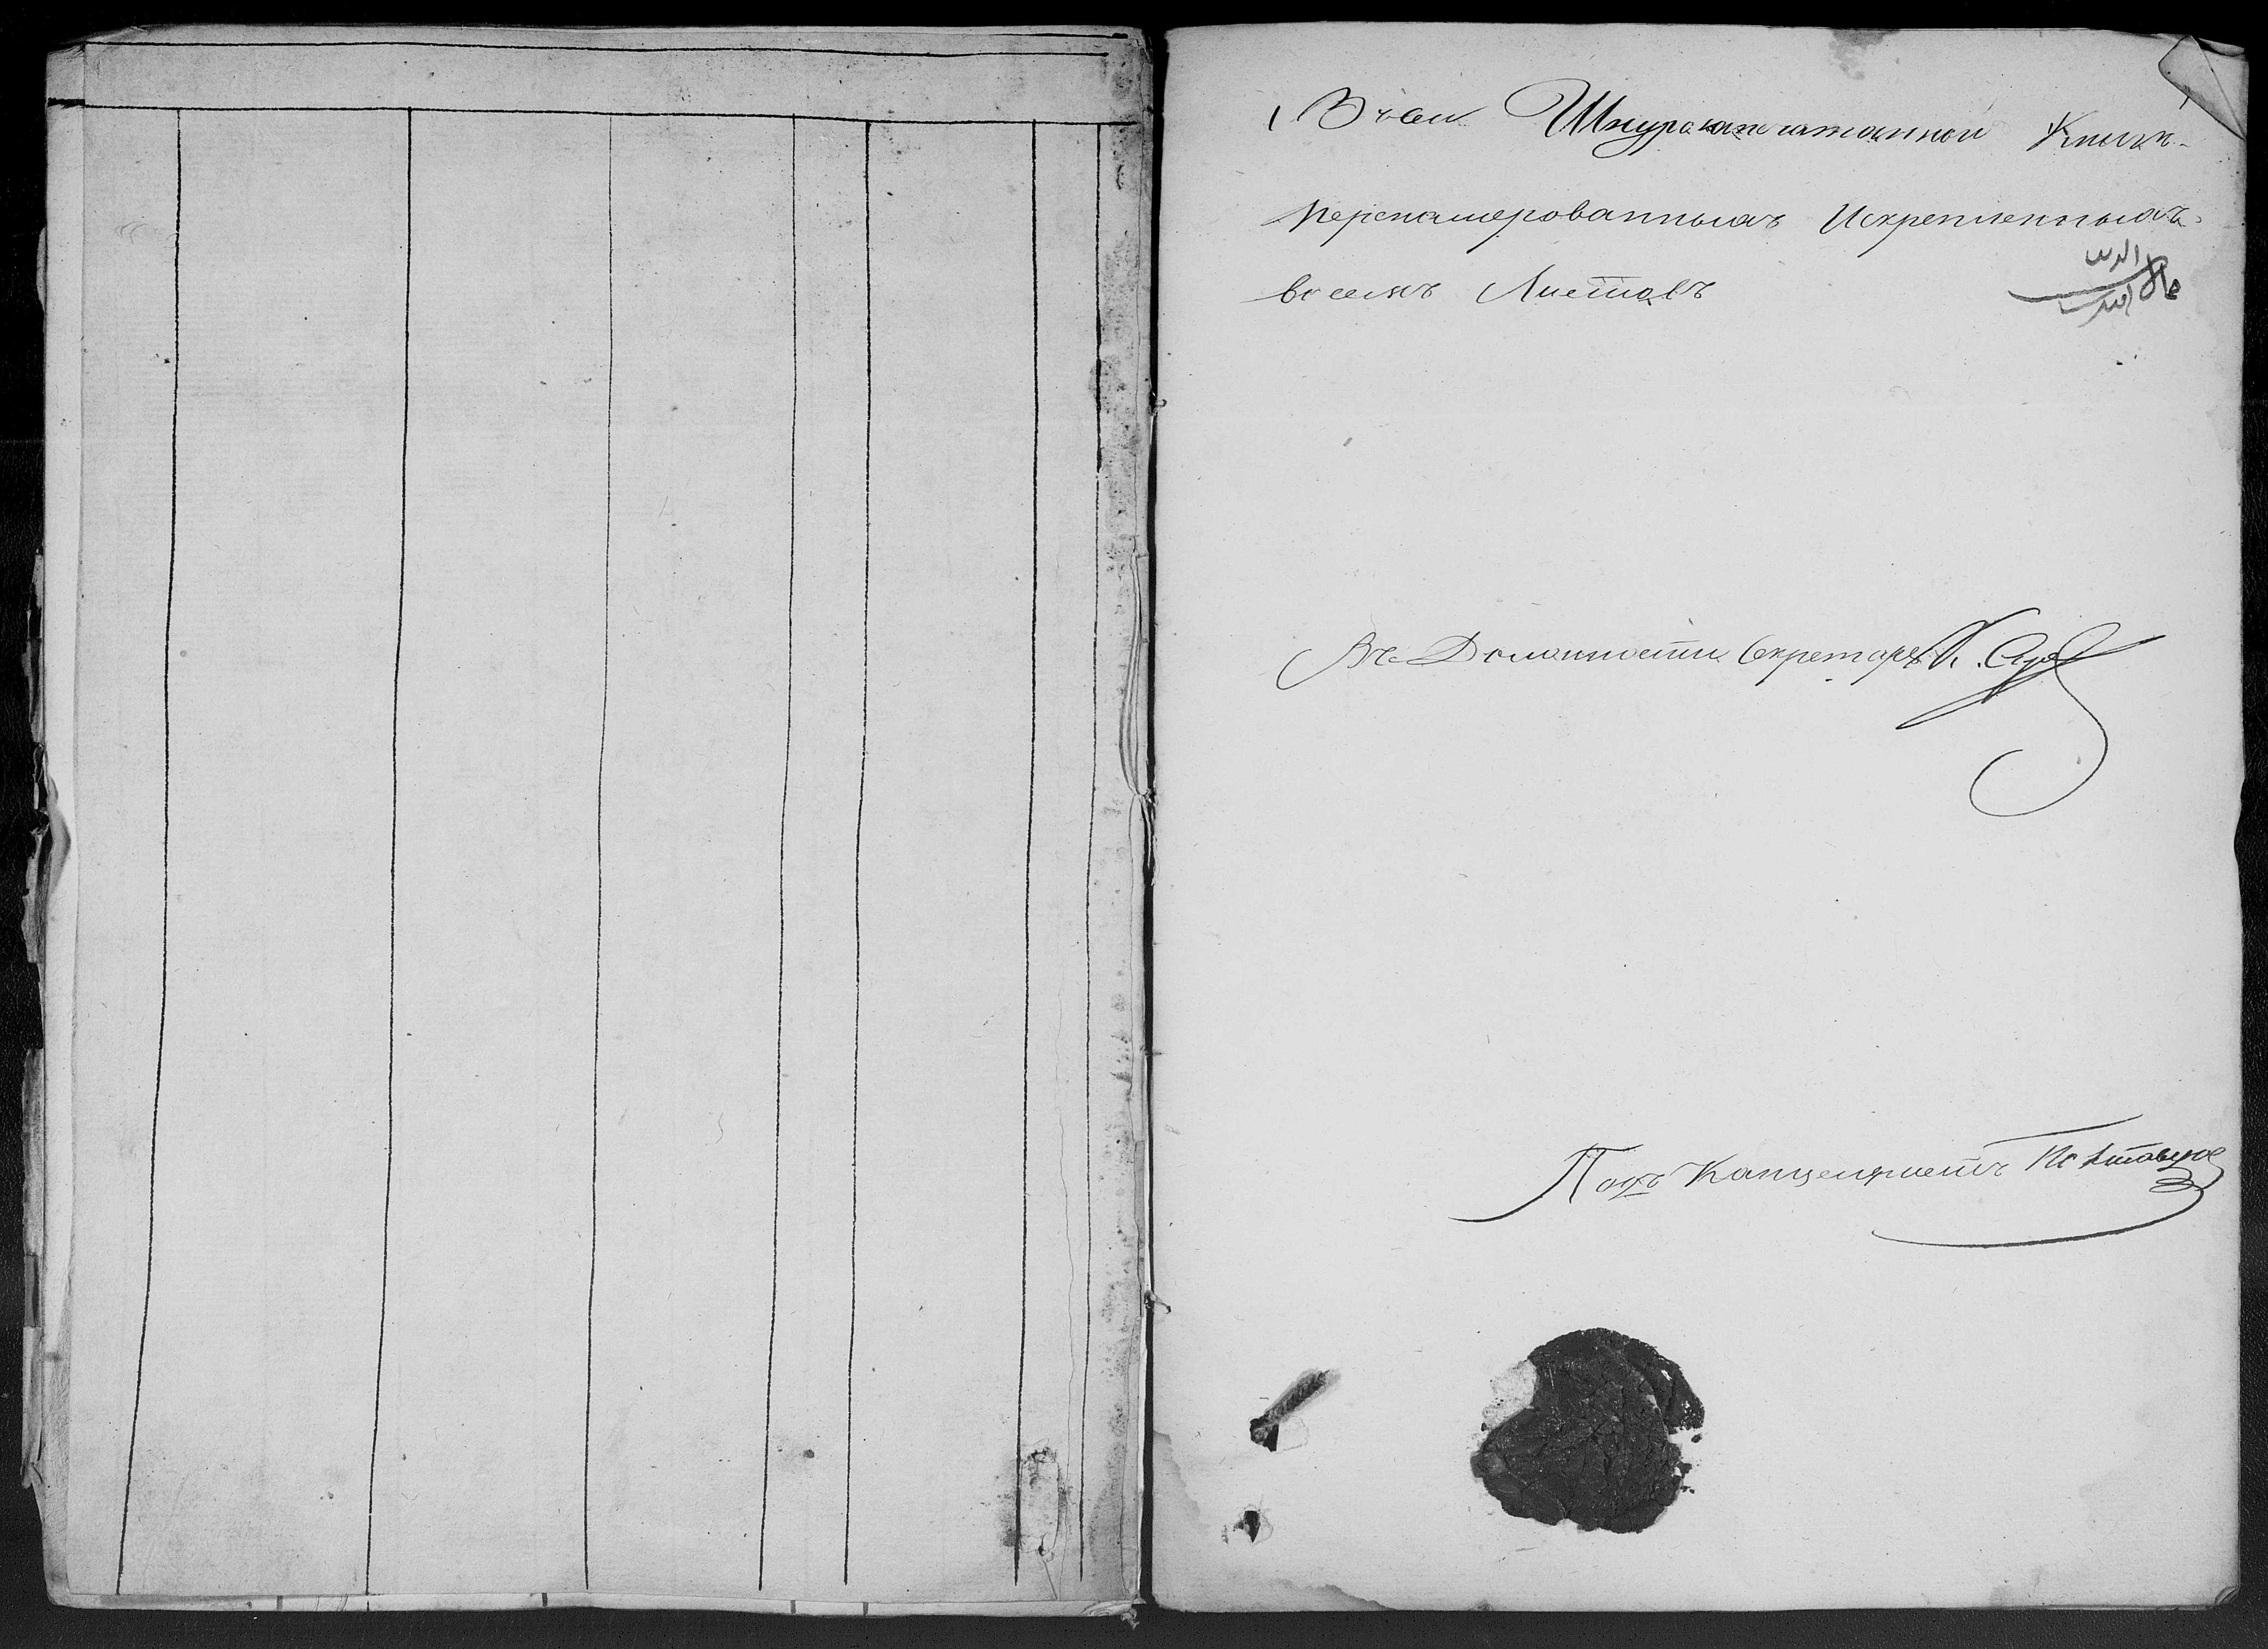 Въ сей Шнурозапечатанной Книги
перенамерованныхъ Искрепленныхъ
восемь Листовъ
Въ Должности Секретаря
Подъ Канцеляристъ